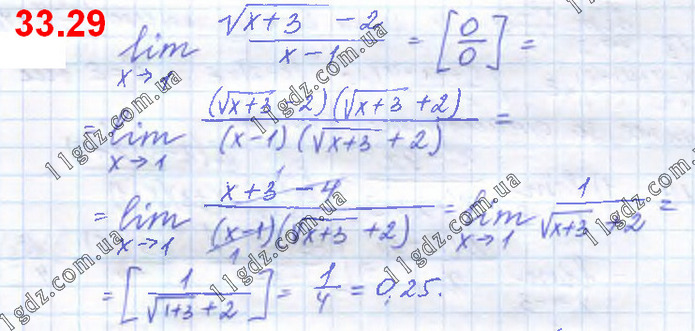 33.29
lim x→1 (√(x+3) - 2)/(x - 1) = [0/0] =
= lim x→1 ((√(x+3) - 2)(√(x+3) + 2))/((x-1)(√(x+3) + 2)) =
= lim x→1 (x+3-4)/((x-1)(√(x+3) + 2)) = lim x→1 1/(√(x+3) + 2) =
= [1/(√(1+3) + 2)] = 1/4 = 0,25.
11gdz.com.ua
11gdz.com.ua
11gdz.com.ua
11gdz.com.ua
11gdz.com.ua
11gdz.com.ua